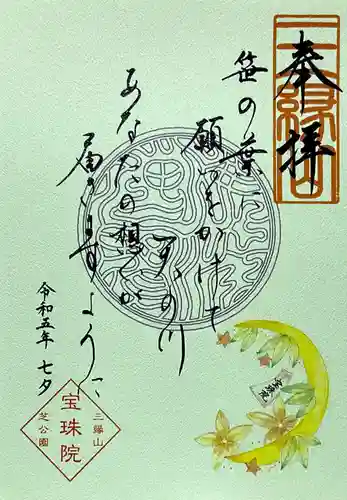 奉拝
三縁山
笹の葉に
願いをかけて
天の川
あなたの想いが
届きますように
令和五年 七夕
三縁山
宝珠院
芝公園